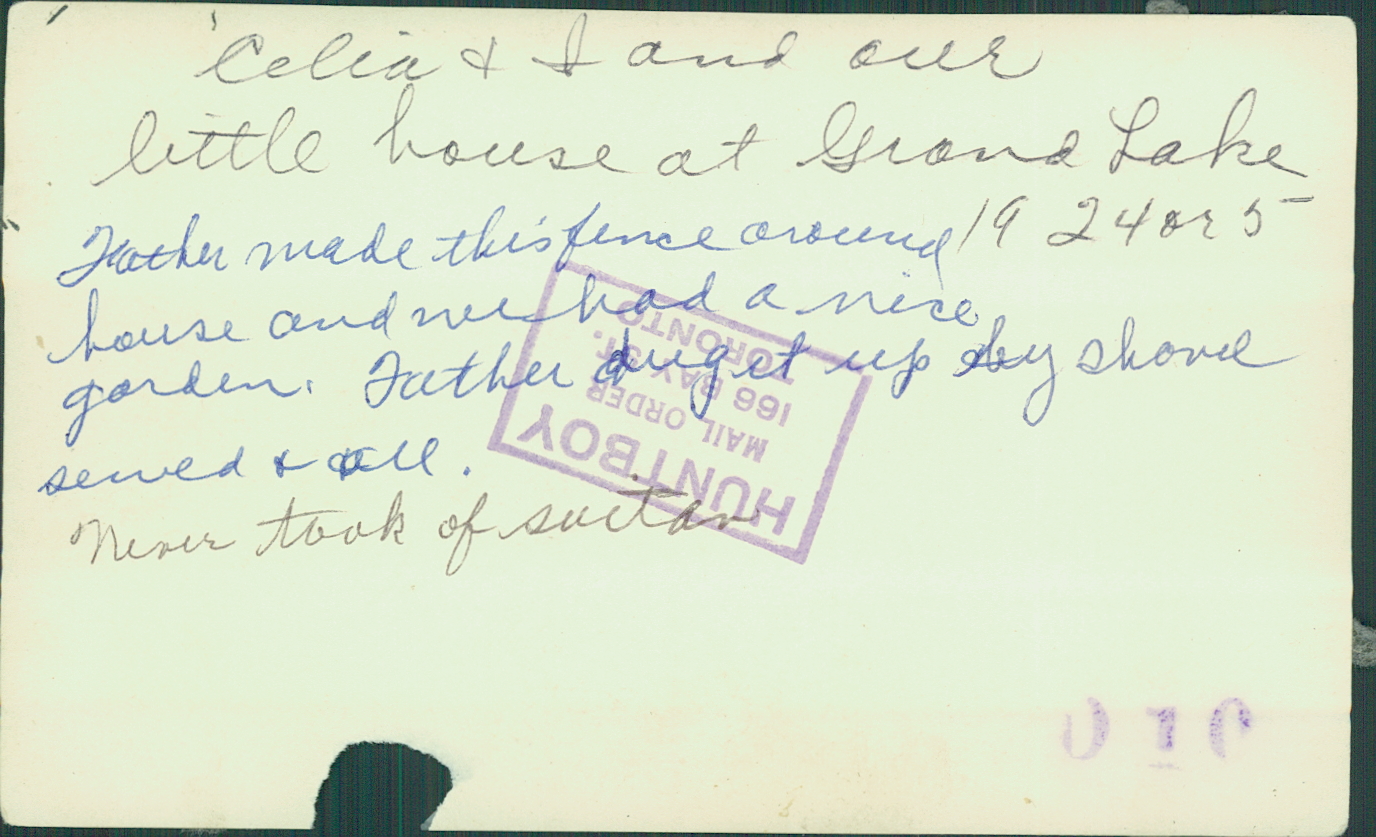 Celia & I and our
little house at Grand Lake
1924 or 5
Father made this fence around
house and we had a nice
garden. Father dug it up by shovel
sewed & all.
Never took of suitar
HUNTBOY
MAIL ORDER
166 BAY ST.
TORONTO
010